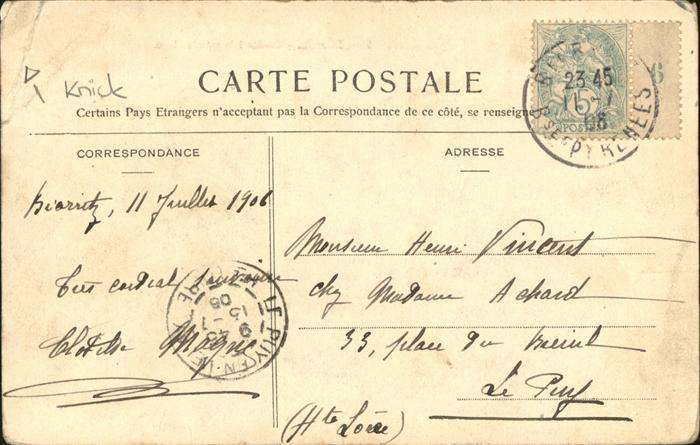 Knick
CARTE POSTALE
Certains Pays Etrangers n'acceptant pas la Correspondance de ce côté, se renseigne
CORRESPONDANCE
Biarritz, 11 Juillet 1906
Très cordial souvenir
Clotilde
ADRESSE
Monsieur Henri Vincent
chez Madame Achard
33, place du Breuil
Le Puy
(Hte Loire)
23·45
PYRENEES
POSTES
6
LE PUY-EN-
15 -7
06